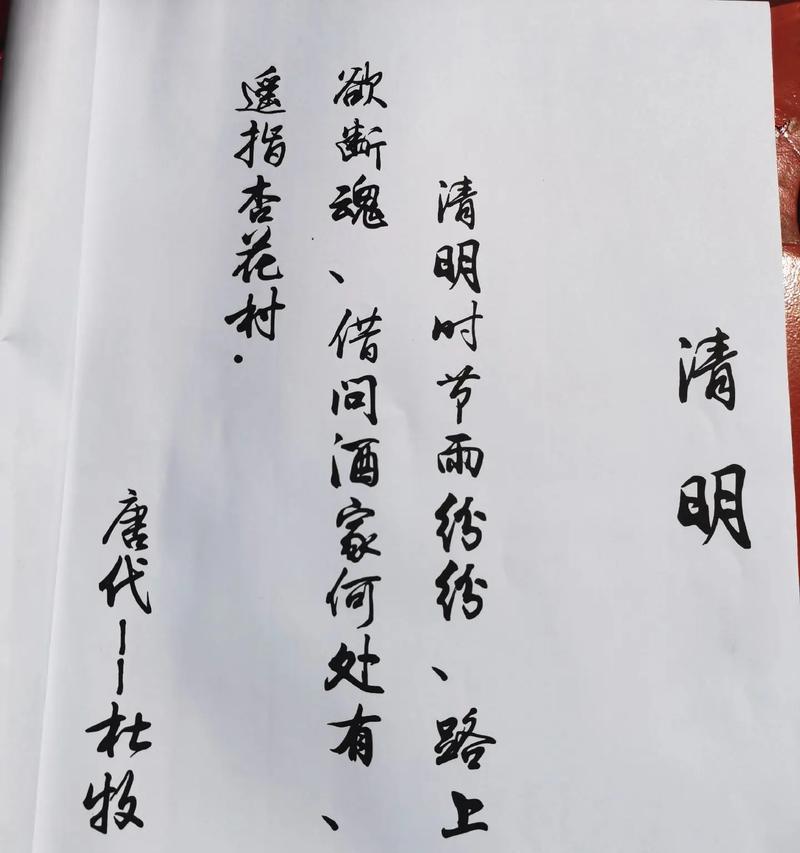 清明
清明时节雨纷纷、路上
欲断魂、借问酒家何处有、
遥指杏花村.
唐代——杜牧